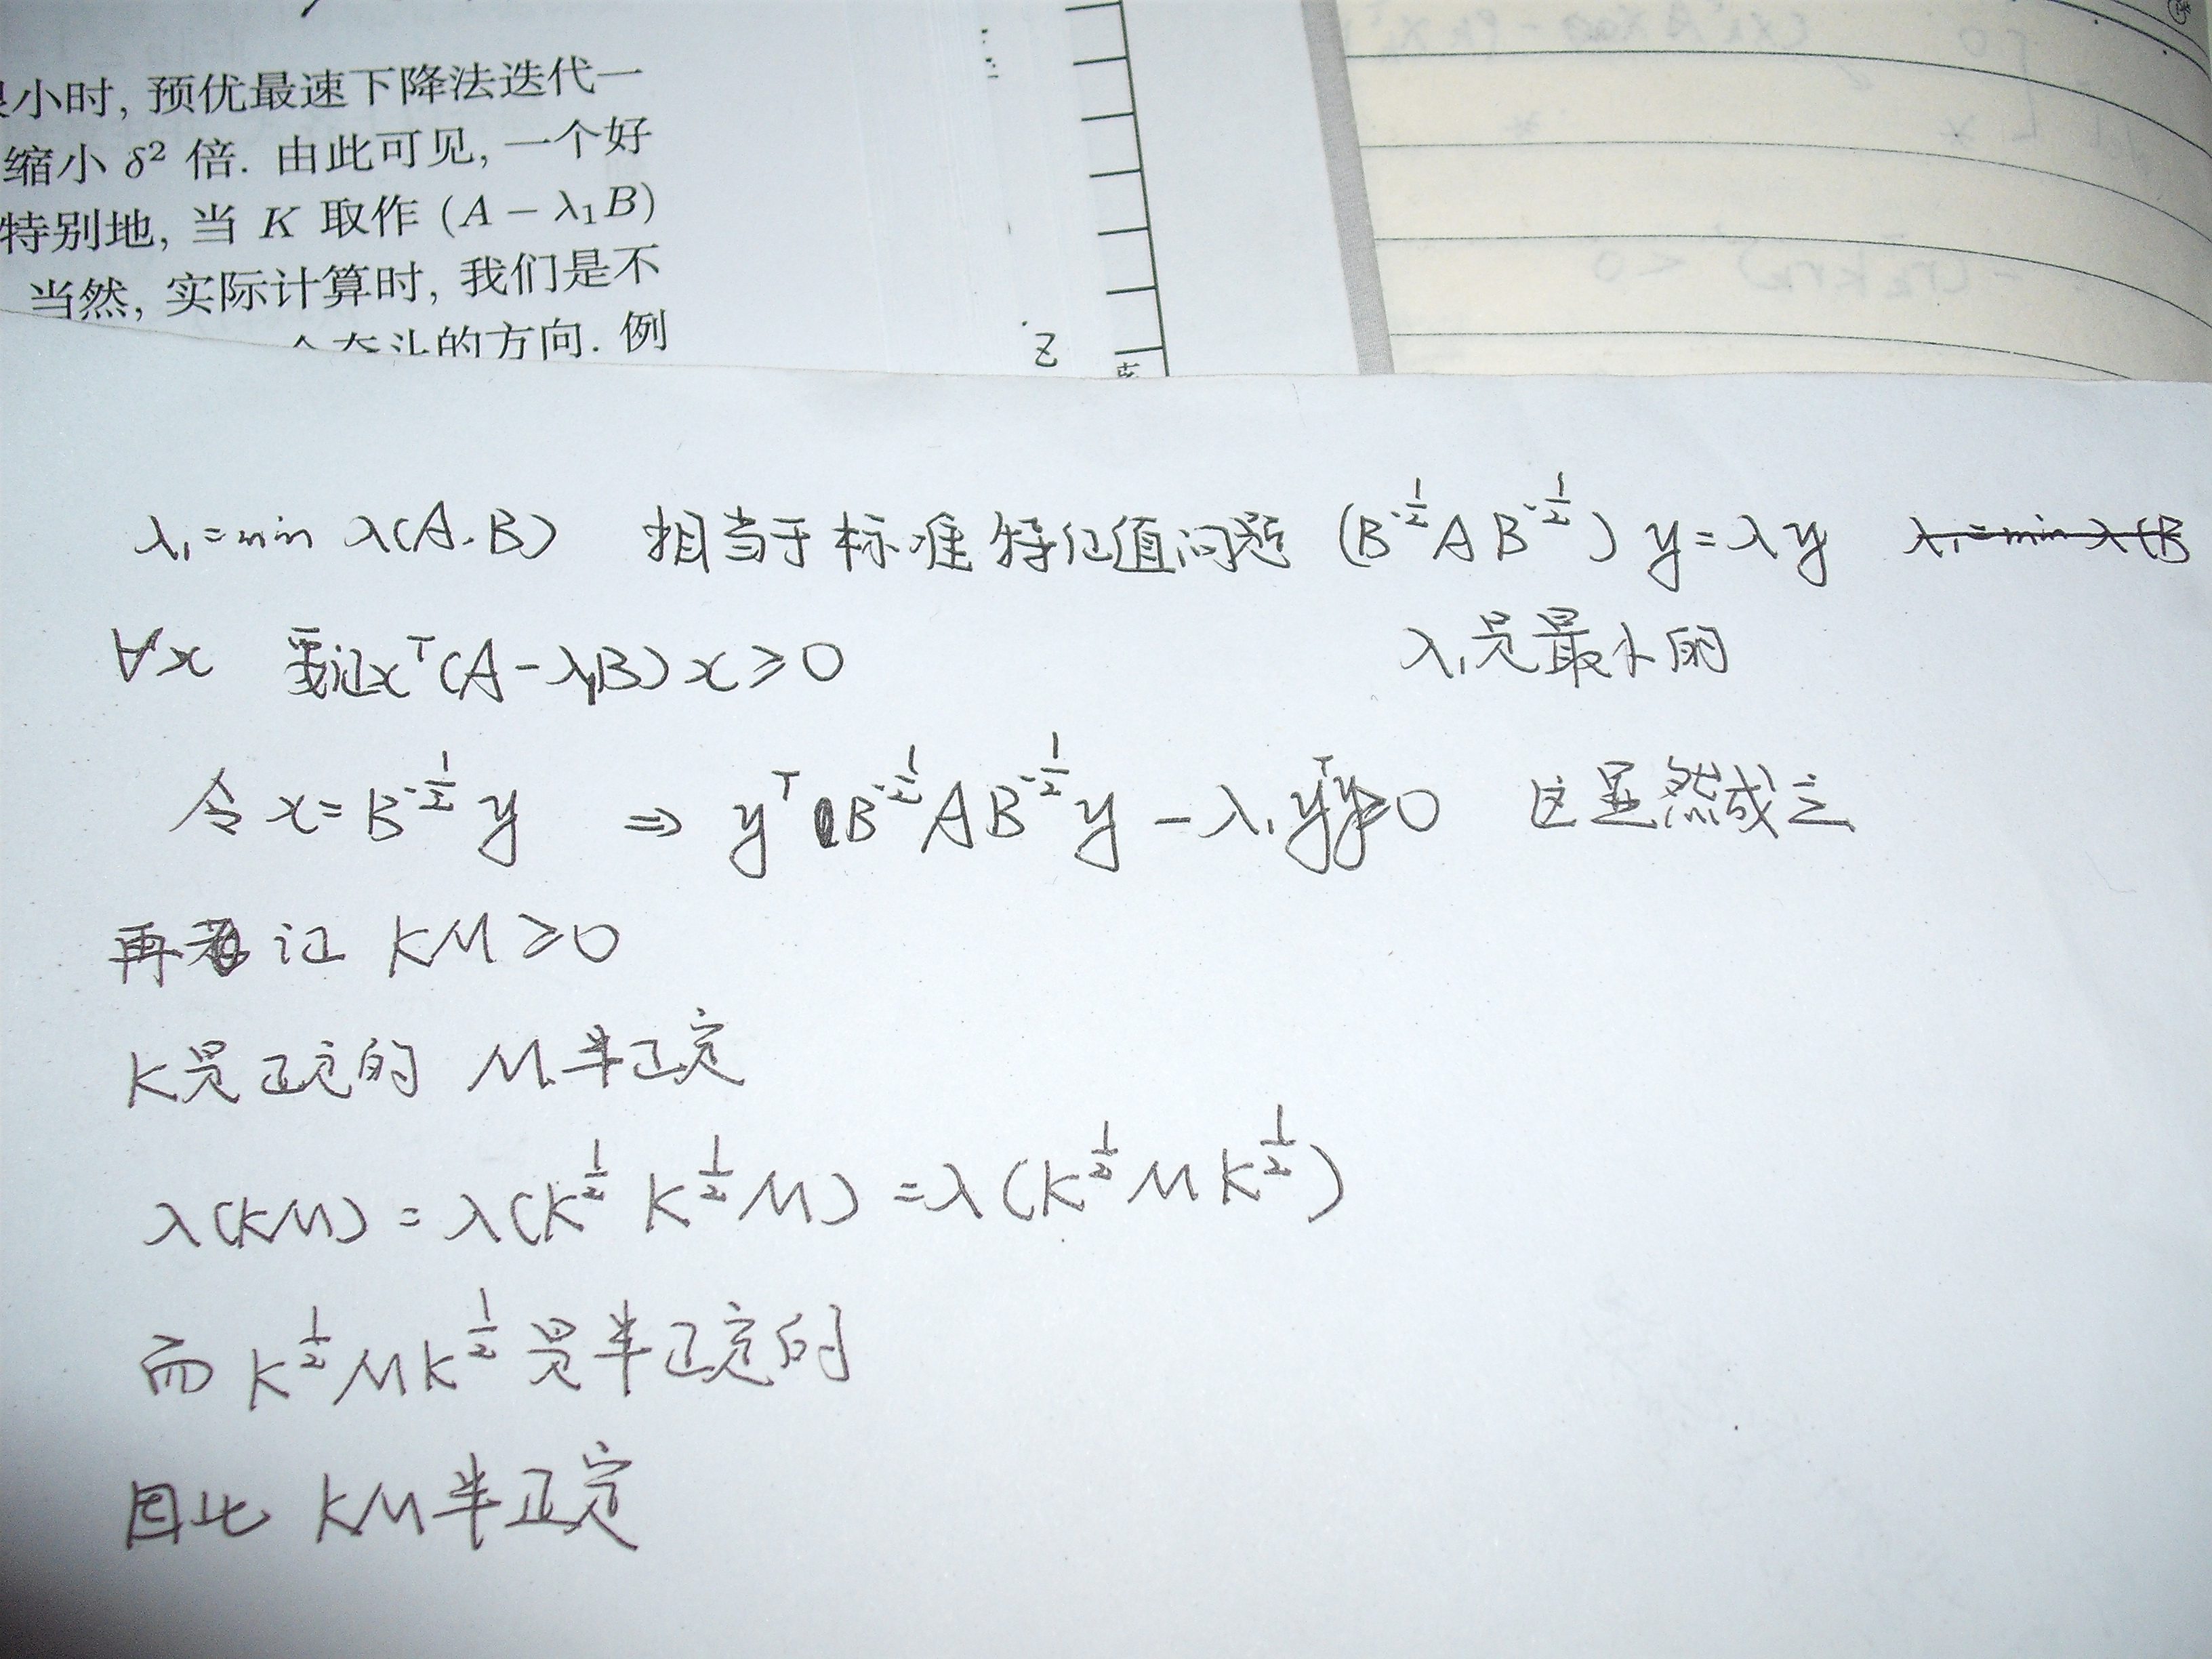 小时, 预优最速下降法迭代一
缩小 δ² 倍. 由此可见, 一个好
特别地, 当 K 取作 (A − λ₁B)
当然, 实际计算时, 我们是不
的方向. 例
λ₁=min λ(A.B) 相当于标准特征值问题 (B^{-1/2}AB^{-1/2}) y=λy
∀x 要证x^T(A-λ₁B)x≥0 λ₁是最小的
令 x=B^{-1/2}y ⇒ y^T B^{-1/2}AB^{-1/2}y - λ₁y^Ty≥0 这显然成立
再证 KM≥0
K是正定的 M半正定
λ(KM) = λ(K^{1/2} K^{1/2}M) = λ(K^{1/2}MK^{1/2})
而 K^{1/2}MK^{1/2} 是半正定的
因此 KM半正定